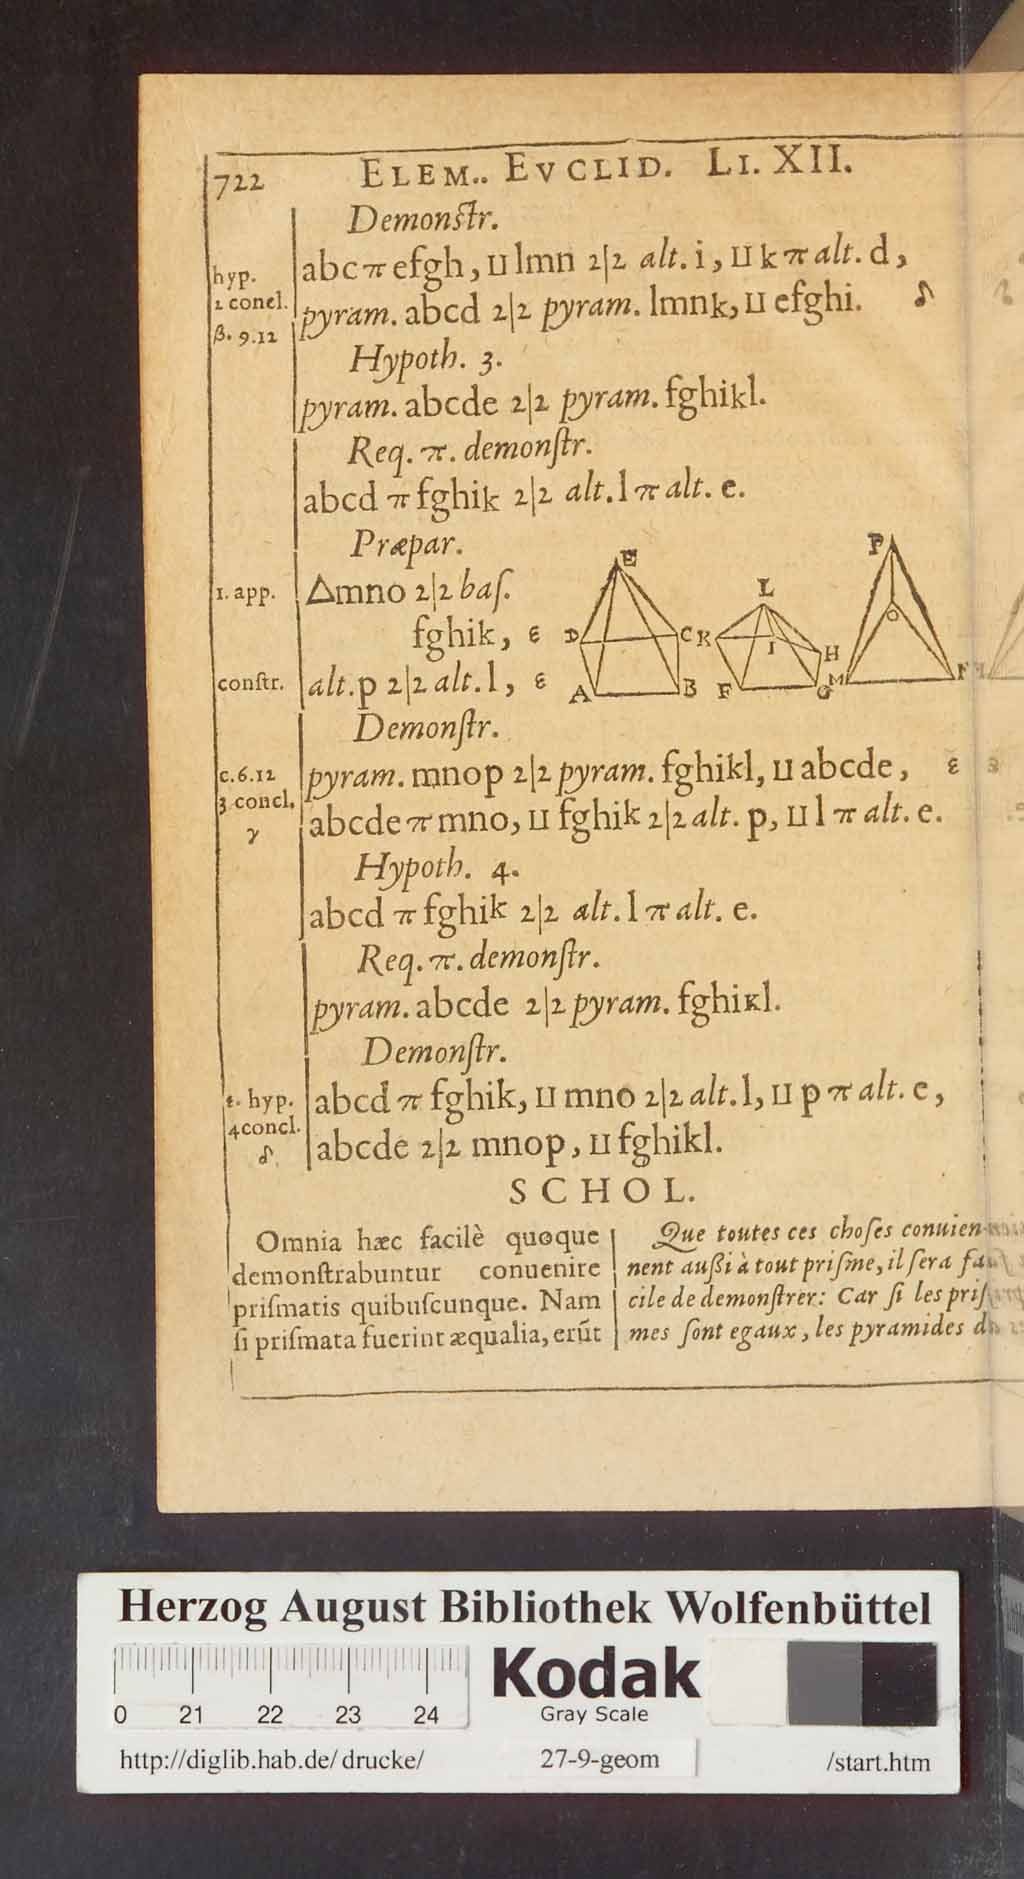 722 ELEM.. EVCLID. LI. XII.
Demonſtr.
hyp. abc π efgh, ⊔ lmn 2|2 alt. i, ⊔ k π alt. d,
2 concl. pyram. abcd 2|2 pyram. lmnk, ⊔ efghi. δ
β. 9.12
Hypoth. 3.
pyram. abcde 2|2 pyram. fghikl.
Req. π. demonſtr.
abcd π fghik 2|2 alt. l π alt. e.
Præpar.
1. app. Δmno 2|2 baſ.
fghik, ε
conſtr. alt. p 2|2 alt. l, ε
E D C A B
L K I H F G
P O M N
Demonſtr.
c.6.12 pyram. mnop 2|2 pyram. fghikl, ⊔ abcde, ε
3 concl. abcde π mno, ⊔ fghik 2|2 alt. p, ⊔ l π alt. e.
γ
Hypoth. 4.
abcd π fghik 2|2 alt. l π alt. e.
Req. π. demonſtr.
pyram. abcde 2|2 pyram. fghikl.
Demonſtr.
hyp. abcd π fghik, ⊔ mno 2|2 alt. l, ⊔ p π alt. e,
4 concl. abcde 2|2 mnop, ⊔ fghikl.
δ
SCHOL.
Omnia hæc facilè quoque
demonſtrabuntur conuenire
priſmatis quibuſcunque. Nam
ſi priſmata fuerint æqualia, erũt
Que toutes ces choſes conuien-
nent außi à tout priſme, il ſera fa-
cile de demonſtrer: Car ſi les priſ-
mes ſont egaux, les pyramides
Herzog August Bibliothek Wolfenbüttel
0 21 22 23 24
Kodak
Gray Scale
http://diglib.hab.de/drucke/ 27-9-geom /start.htm